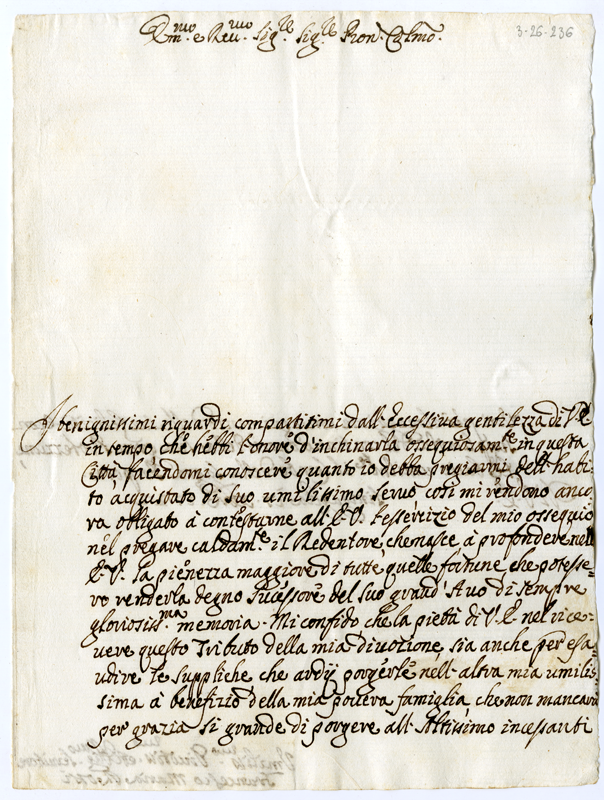 Em.mo e Reu.mo Sig.re Sig.re Pron. Colmo.
3-26-236
I benignissimi riguardi compartitimi dall'Eccessiua gentilezza di V.E.
in tempo, che hebbi l'onore d'inchinarla ossequiosam.te in questa
Città facendomi conoscere quanto io debba pregiarmi dell'habi-
to acquistato di suo umilissimo seruo così mi rendono anco-
ra obligato à contesturne all'E.V. l'essercizio del mio ossequio
nel pregare caldam.te il Redentore, che nasce à profondere nell'
E.V. la pienezza maggiore di tutte quelle fortune che potesse-
ro renderla degno sucessore del suo grand'Auo di sempre
gloriosiss.ma memoria. Mi confido che la pietà di V.E. nel rice-
uere questo Tributo della mia diuozione, sia anche per esa-
udire le suppliche che ardij porgerle nell'altra mia umilis-
sima à benefizio della mia pouera famiglia, che non mancarà
per grazia si grande di porgere all'Altissimo incessanti